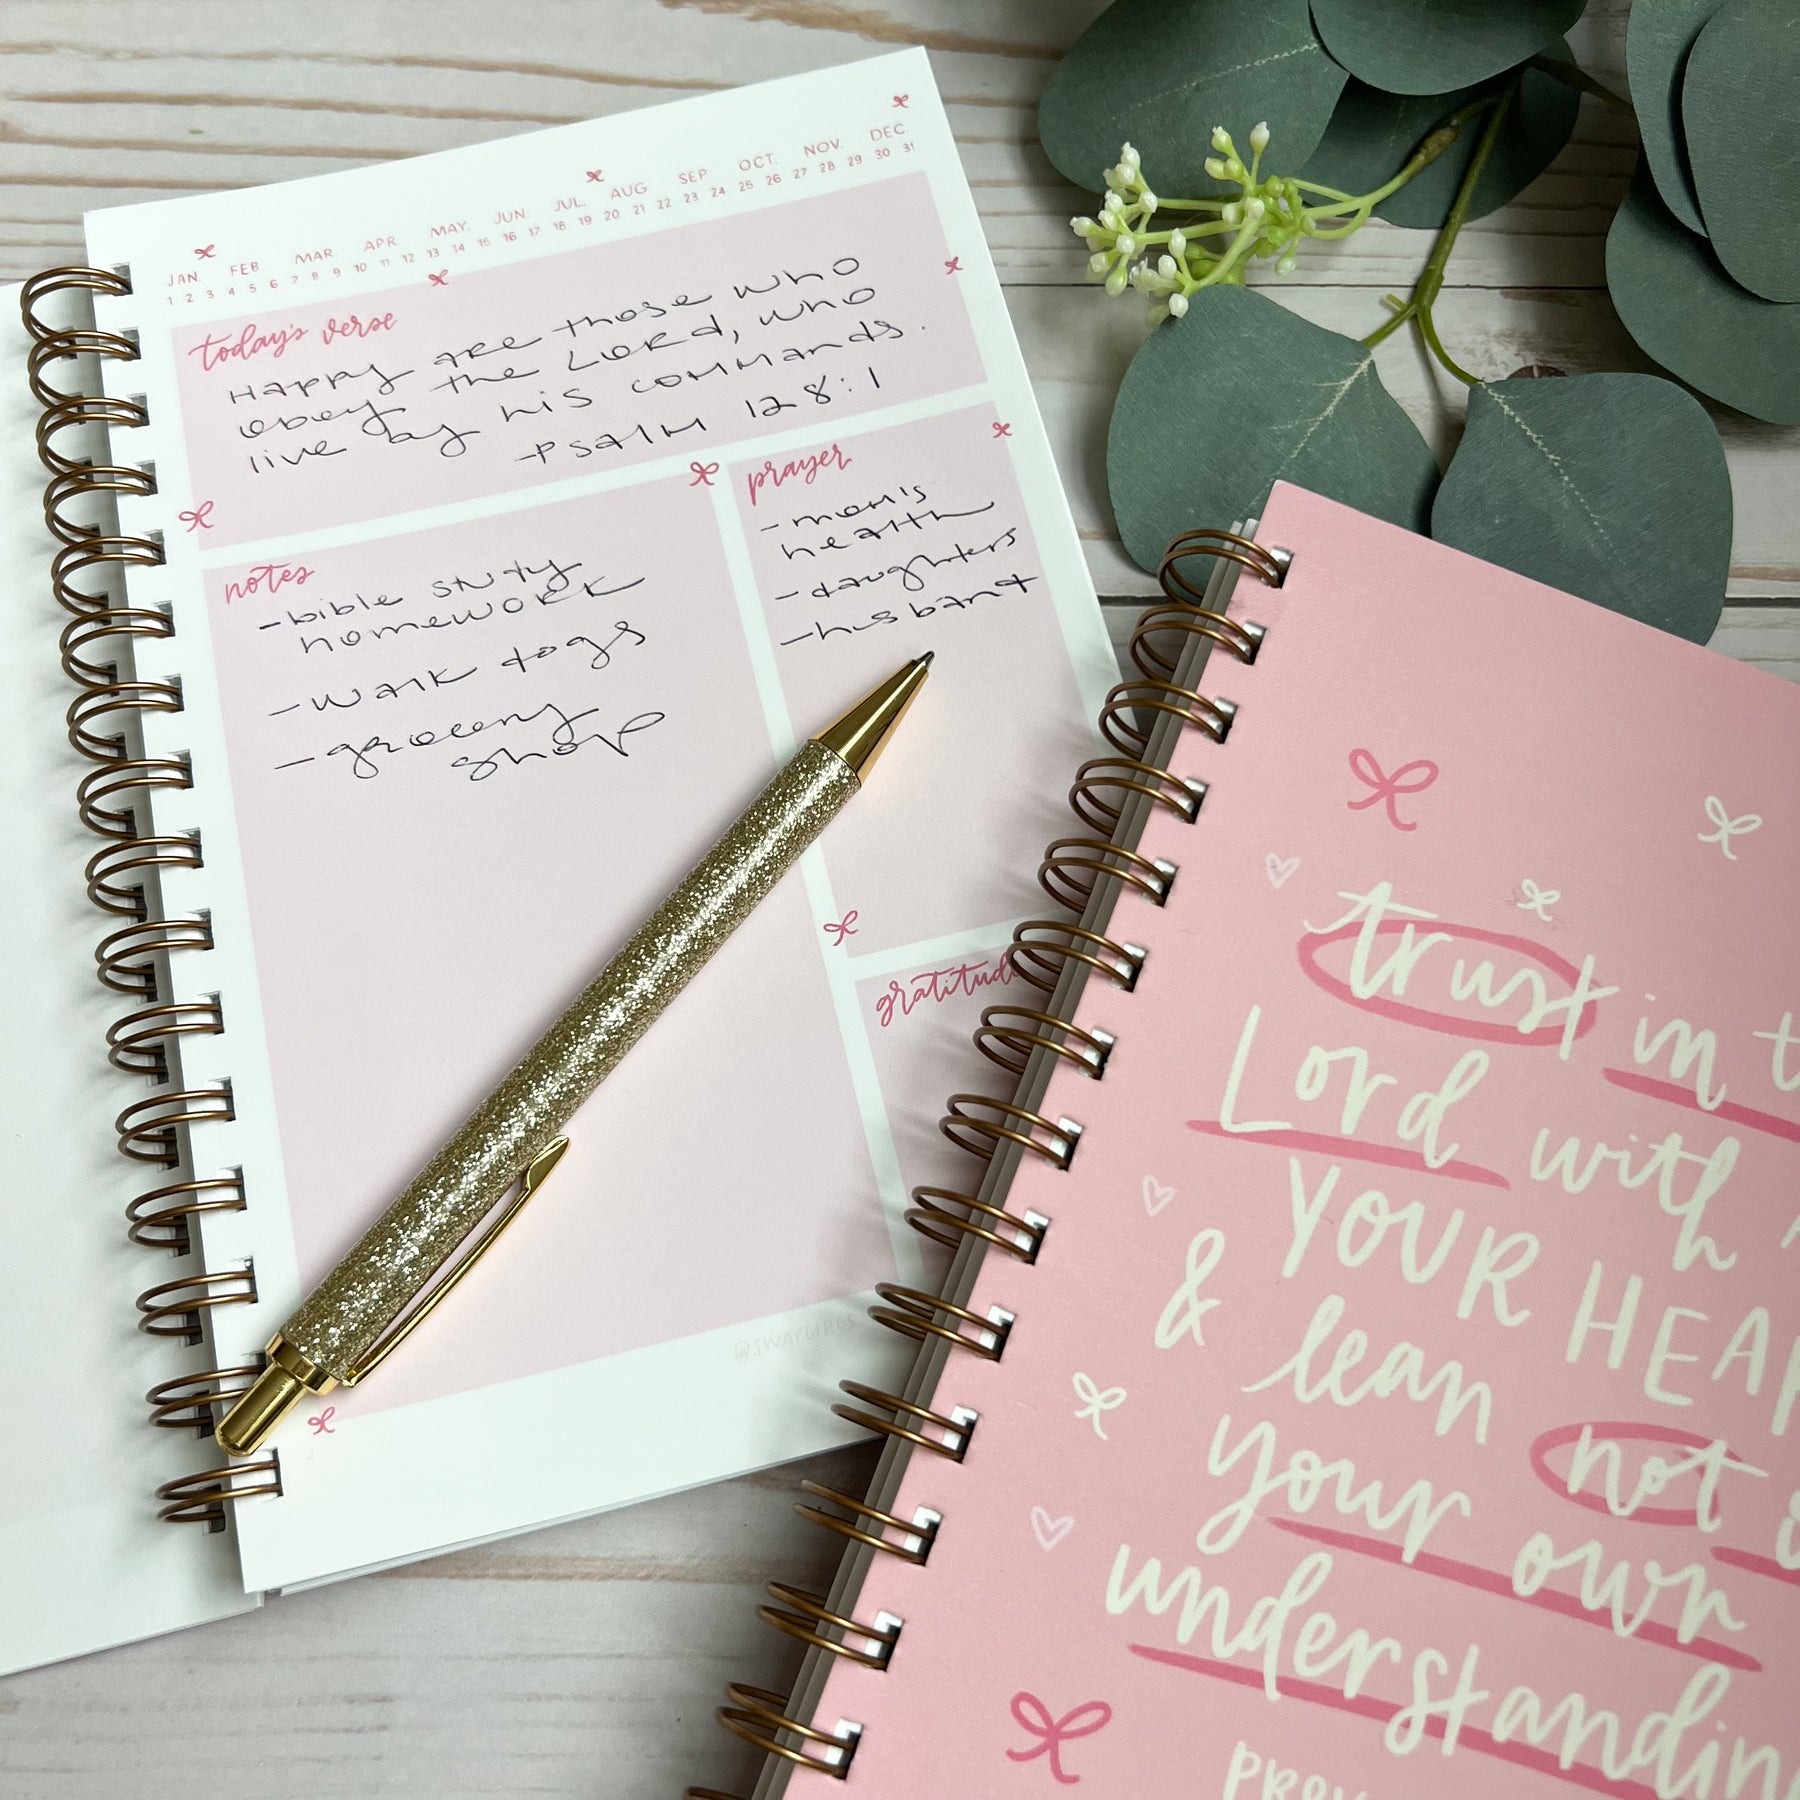 JAN. FEB. MAR. APR. MAY. JUN. JUL. AUG SEP OCT. NOV. DEC.
1 2 3 4 5 6 7 8 9 10 11 12 13 14 15 16 17 18 19 20 21 22 23 24 25 26 27 28 29 30 31
today's verse
Happy are those who
obey the Lord, who
live by his commands.
-Psalm 128:1
notes
-bible study
homework
-walk dogs
-grocery
shop
prayer
-mom's
health
-daughters
-husband
gratitude
@SWAYGIRLS
trust in t
Lord with
YOUR HEAR
& lean not i
your own
understandin
PROV